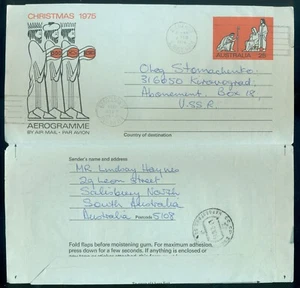 CHRISTMAS 1975
AUSTRALIA
Oleg Stomachenko
316050 Kirovograd
Abonement, Box 18
USSR
AEROGRAMME
BY AIR MAIL • PAR AVION
Country of destination
Sender's name and address
MR Lindsay Haynes
29 Leon Street
Salisbury North
South Australia
Australia Postcode 5108
Fold flaps before moistening gum. For maximum adhesion,
press down for a few seconds. If anything is enclosed or